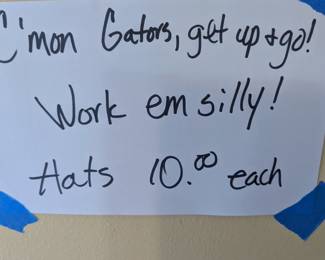 C'mon Gators, get up & go!
Work em silly!
Hats 10.00 each